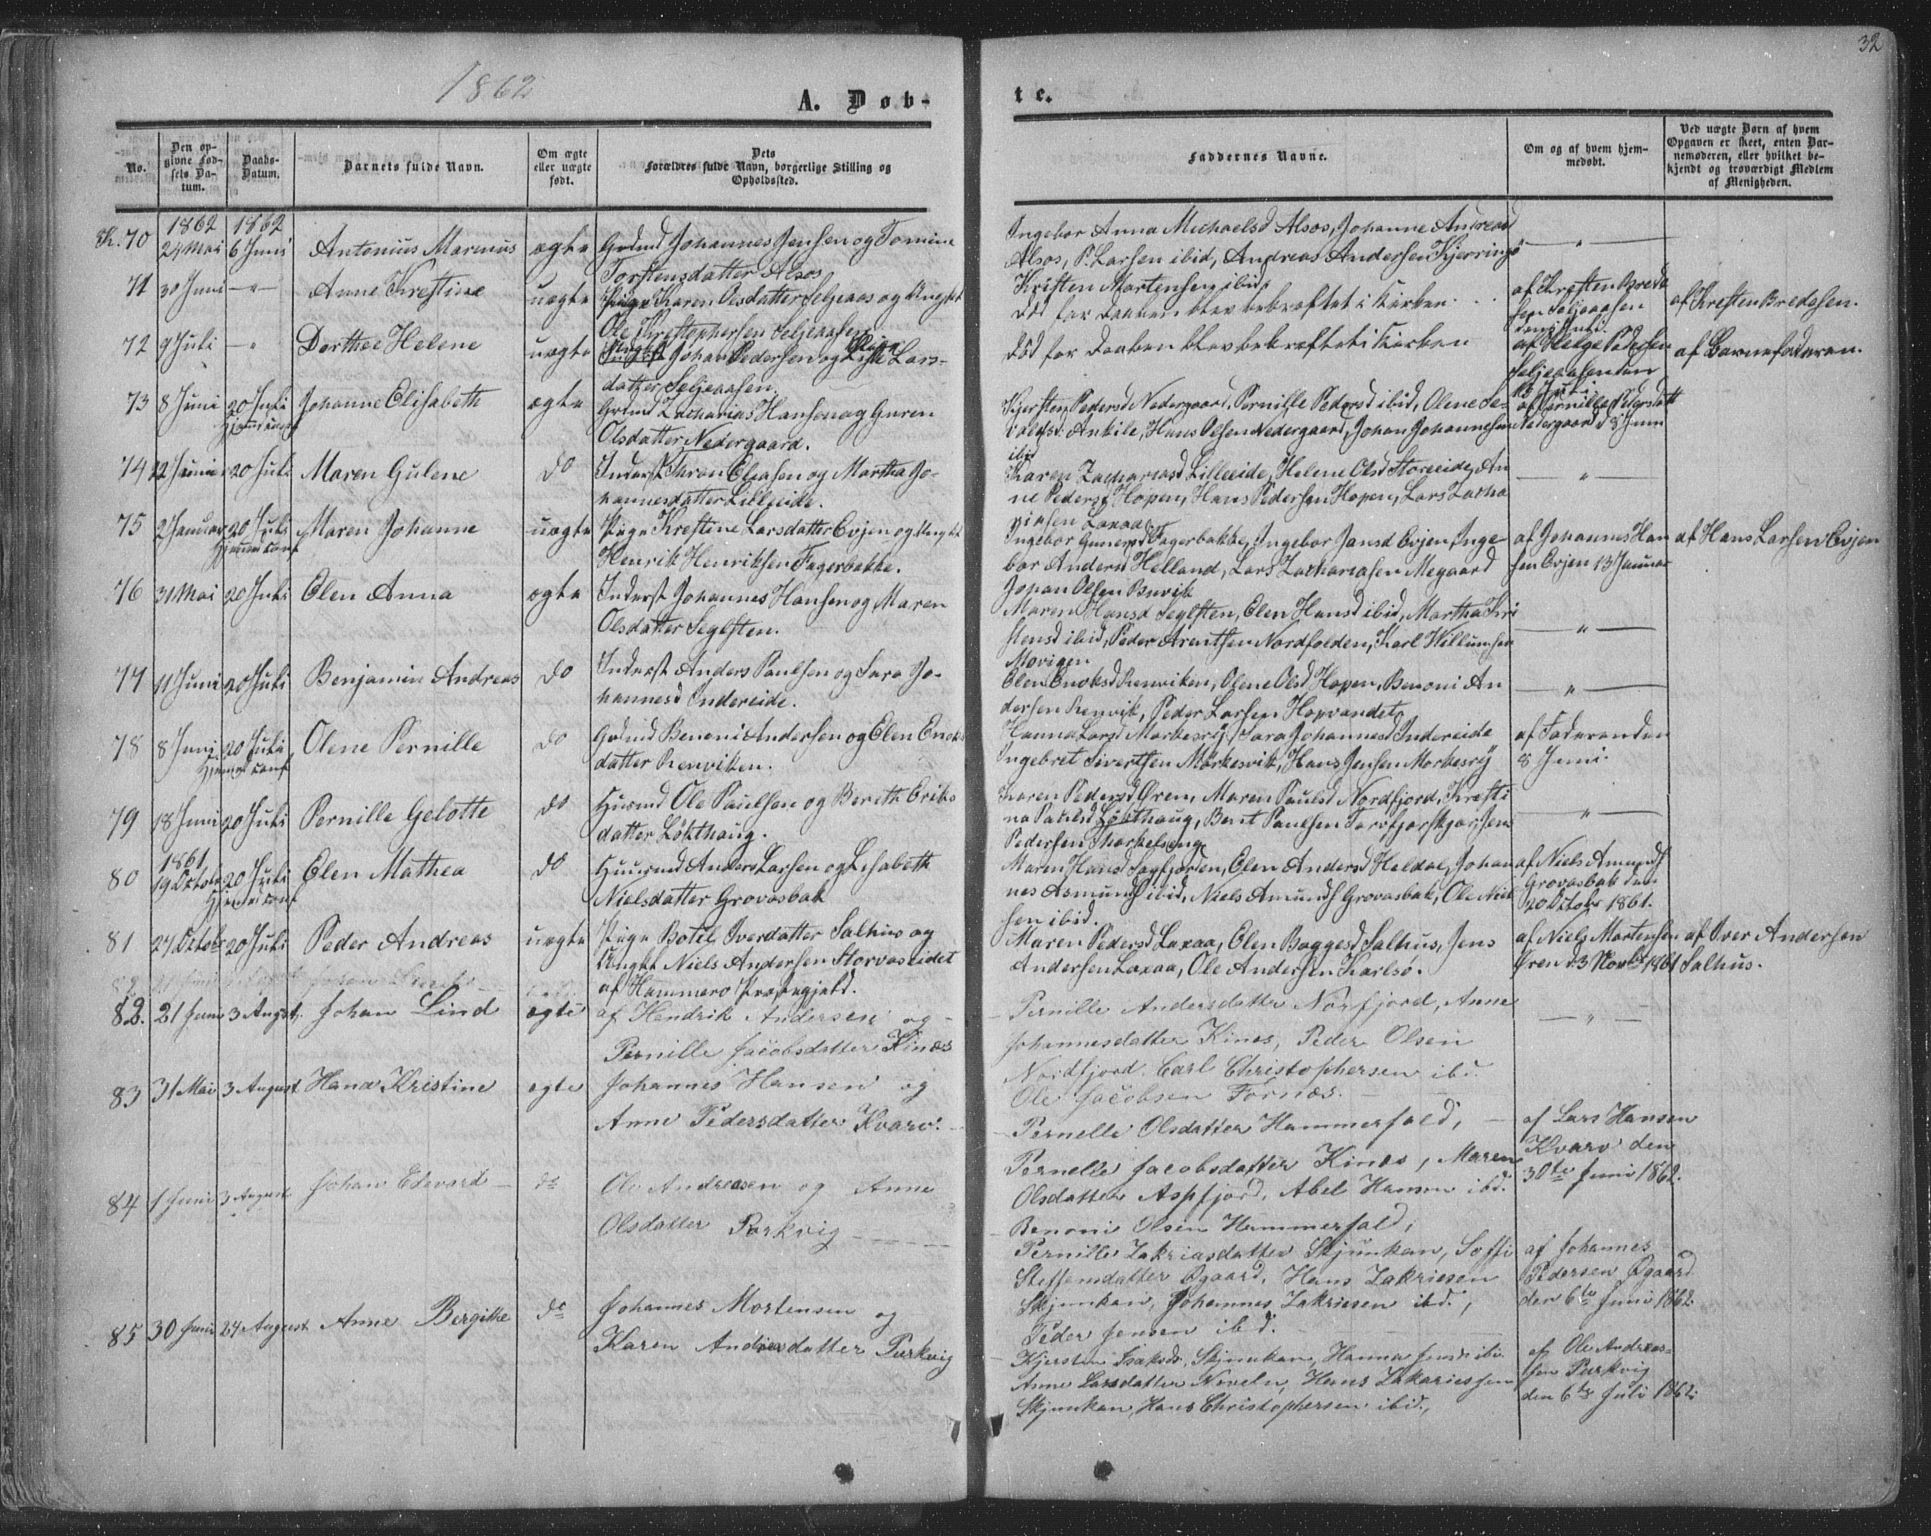 32
1862
A. Døb-
te.
No.
Den op-
givne Fød-
sels Da-
tum.
Daabs-
Datum.
Barnets fulde Navn.
Om ægte
eller uægte
født.
Dets
Forældres fulde Navn, borgerlige Stilling og
Opholdssted.
Faddernes Navne.
Om og af hvem hjem-
medøbt.
Ved uægte Børn af hvem
Opgaven er skeet, enten Bar-
nemoderen, eller hvilket be-
kjendt og troværdigt Medlem
af Menigheden.
1862 1862
70 24 Mai 6 Juni Antonius Marenus ægte Grdmd Johannes Jensen og Tomine
Torstensdatter Alsos
Ingebor Anna Michaelsd Alsos, Johanne Andreasd
Alsos, P. Larsen ibid, Andreas Andersen Kjerringø
Kristen Mortensen ibid.
71 30 Juni - " - Anne Krestine uægte Pige Karen Olsdatter Seljeaas og Ungkl
Ole Kristophersen Seljeaasen
død før Daaben blev bekræftet i Kirken
af Kresten Brede
sen Seljeaasen
af Kresten Bredesen.
72 9 Juli - " Dorthee Helene uægte Johan Pedersen og Lars-
datter Seljeaasen.
død før Daaben blev bekræftet i Kirken
af Helge Pedersen
Seljeaasen den
af Barnefaderen.
73 8 Juni 20 Juli Johanne Elisabeth ægte Grdmd Zacharias Hansen og Guren
Hjemd conf
Olsdatter Nedergaard.
Kjersten Pedersd Nedergaard, Pernille Pedersd ibid, Olene
Ankile, Hans Olsen Nedergaard, Johan Johannesen
ibid
af Pernille Pedersdatt
Nedergaard d 8 Juni
74 22 Juni 20 Juli Maren Gulene do Inderst Thron Eliasen og Martha Jo-
hannesdatter Lilleeide.
Karen Zachariasd Lilleeide, Helene Olsd Storeeide, An
ne Pedersd Hopen, Hans Pedersen Hopen, Lars Zacha
riasen Laxaa
- " -
75 2 Januar 20 Juli Maren Johanne uægte Pige Krestine Larsdatter Evjen og Ungkl
Hjemd conf
Henrik Henriksen Fagerbakke.
Ingebor Fagerbakke, Ingebor Jansd Evjen, Inge
bor Andersd Helland, Lars Zachariasen Megaard
Johan Olsen Buvik
af Johannes Han
sen Evjen 13 Januar
af Hans Larsen Evjen
76 31 Mai 20 Juli Elen Anna ægte Inderst Johannes Hansen og Maren
Olsdatter Seglsten.
Maren Hansd Seglsten, Elen Hansd ibid, Martha Kri
stensd ibid, Peder Arentsen Nordfolden, Karl Willumsen
Movigen
- " -
77 11 Juni 20 Juli Benjamin Andreas do Inderst Anders Paulsen og Sara Jo-
hannesd Indereide.
Elen Enoksd Renviken, Olene Olsd Hopen, Benoni An
dersen Renvik, Peder Larsen Hopvandet
- " -
78 8 Juni 20 Juli Olene Pernille do Grdmd Benoni Andersen og Elen Enoks
Hjemd conf
datter Renviken.
Hanna Larsd Morkesvig, Sara Johannesd Indereide
Ingebret Sivertsen Morkesvik, Hans Jensen Morkesvig
af Faderen den
8 Juni.
79 18 Juni 20 Juli Pernille Gelotte do Husmd Ole Paulsen og Bereth Eriks
datter Løkthaug.
Karen Pedersd Øren, Maren Paulsd Nordfjord, Kresti
na Paulsd Løkthaug, Bernt Paulsen
Pedersen
- " -
1861
80 19 Octobr 20 Juli Elen Mathea do Huusmd Anders Larsen og Lisabeth
Hjemd conf
Nielsdatter Grovasbak
Maren Hansd Sagfjorden, Elen Andersd Heldal, Johan
nes Asmunds ibid, Niels Amunds Grovasbak, Ole Niel
sen ibid.
af Niels Amunds
Grovasbak den
20 Octobr 1861.
81 27 Octobr 20 Juli Peder Andreas uægte Pige Botel Iversdatter Salhus og
Ungkl Niels Andersen Storvaseidet
af Hammerø Præstegjeld.
Maren Pedersd Laxaa, Elen Baggesd Salhus, Jens
Andersen Laxaa, Ole Andersen Karlsø.
af Niels Mortensen
Øren d 3 Novbr 1861
af Iver Andersen
Salhus.
82. 21 Juni 3 August. Johan Lind ægte af Hendrik Andersen og
Pernille Jacobsdatter Kines
Pernille Andersdatter Norfjord, Anne
Johannesdatter Kines, Peder Olsen
Nordfjord. Carl Christophersen ibd.
Ole Jacobsen Fornæs.
- " -
83 31 Mai 3 August Hana Kristine ægte Johannes Hansen og
Anne Pedersdatter Kvarv.
Pernelle Olsdatter Hammerfald,
Pernelle Jacobsdatter Kines, Maren
Olsdatter Aspfjord, Abel Hansen ibd.
Benoni Olsen Hammerfald,
af Lars Hansen
Kvarv den
30te Juni 1862.
84 1 Juni 3 August Johan Edevard do Ole Andreasen og Anne
Olsdatter Pørkvig
Pernille Zakriasdatter Skjunkan, Soffi
Steffensdatter Øgaard, Hans Zakriesen
Skjunkan, Johannes Zakriesen ibd.,
Peder Jensen ibd.
af Johannes
Pedersen Øgaard
den 6te Juni 1862
85 30 Juni 24 August Anne Bergitte do Johannes Mortensen og
Karen Andreasdatter Pørkvig
Kjersten Isaksd. Skjunkan, Hanna Jensd ibd.
Anne Larsdatter Noveln, Hans Zakriessen
Skjunkan, Hans Christophersen ibd.,
af Ole Andreas-
sen Pørkvig
den 6te Juli 1862.